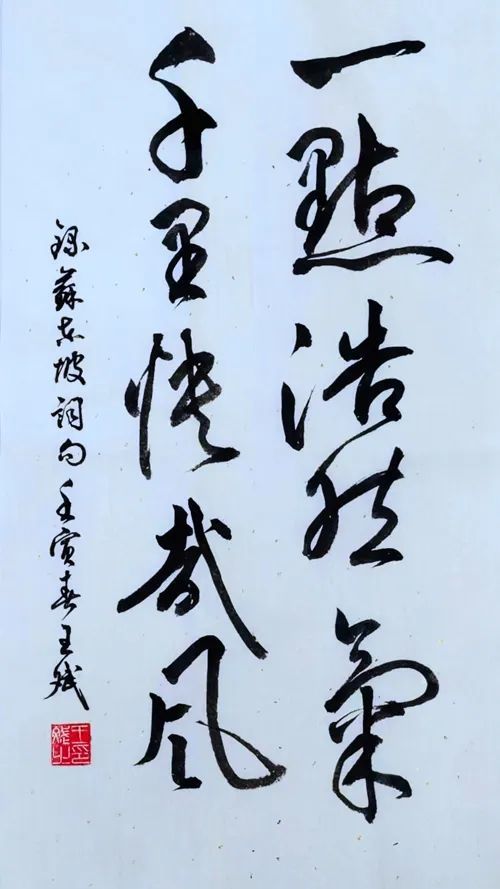 一點浩然氣
千里快哉風
錄蘇東坡詞句壬寅春王斌